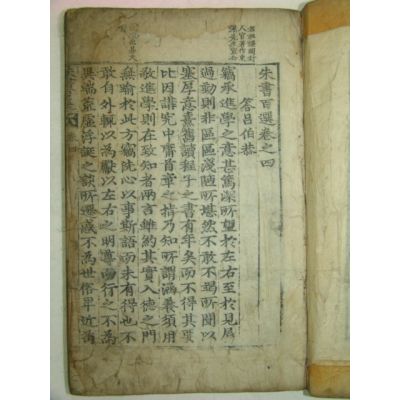 朱書百選卷之四
答呂伯恭
竊承進學之意甚篤深所望於左右至於見屬
過勤則非區區淺陋所堪然不敢不竭所聞以
塞厚意熹舊讀程子之書有年矣而不得其要
比因講究中庸首章之指乃知所謂涵養須用
敬進學則在致知者兩言雖約其實入德之門
無踰於此方竊洗心以事斯語而未有得也不
敢自外輒以爲獻以左右之明尊而行之不爲
異端荒虛浮誕之談所遷惑不爲世俗卑近苟